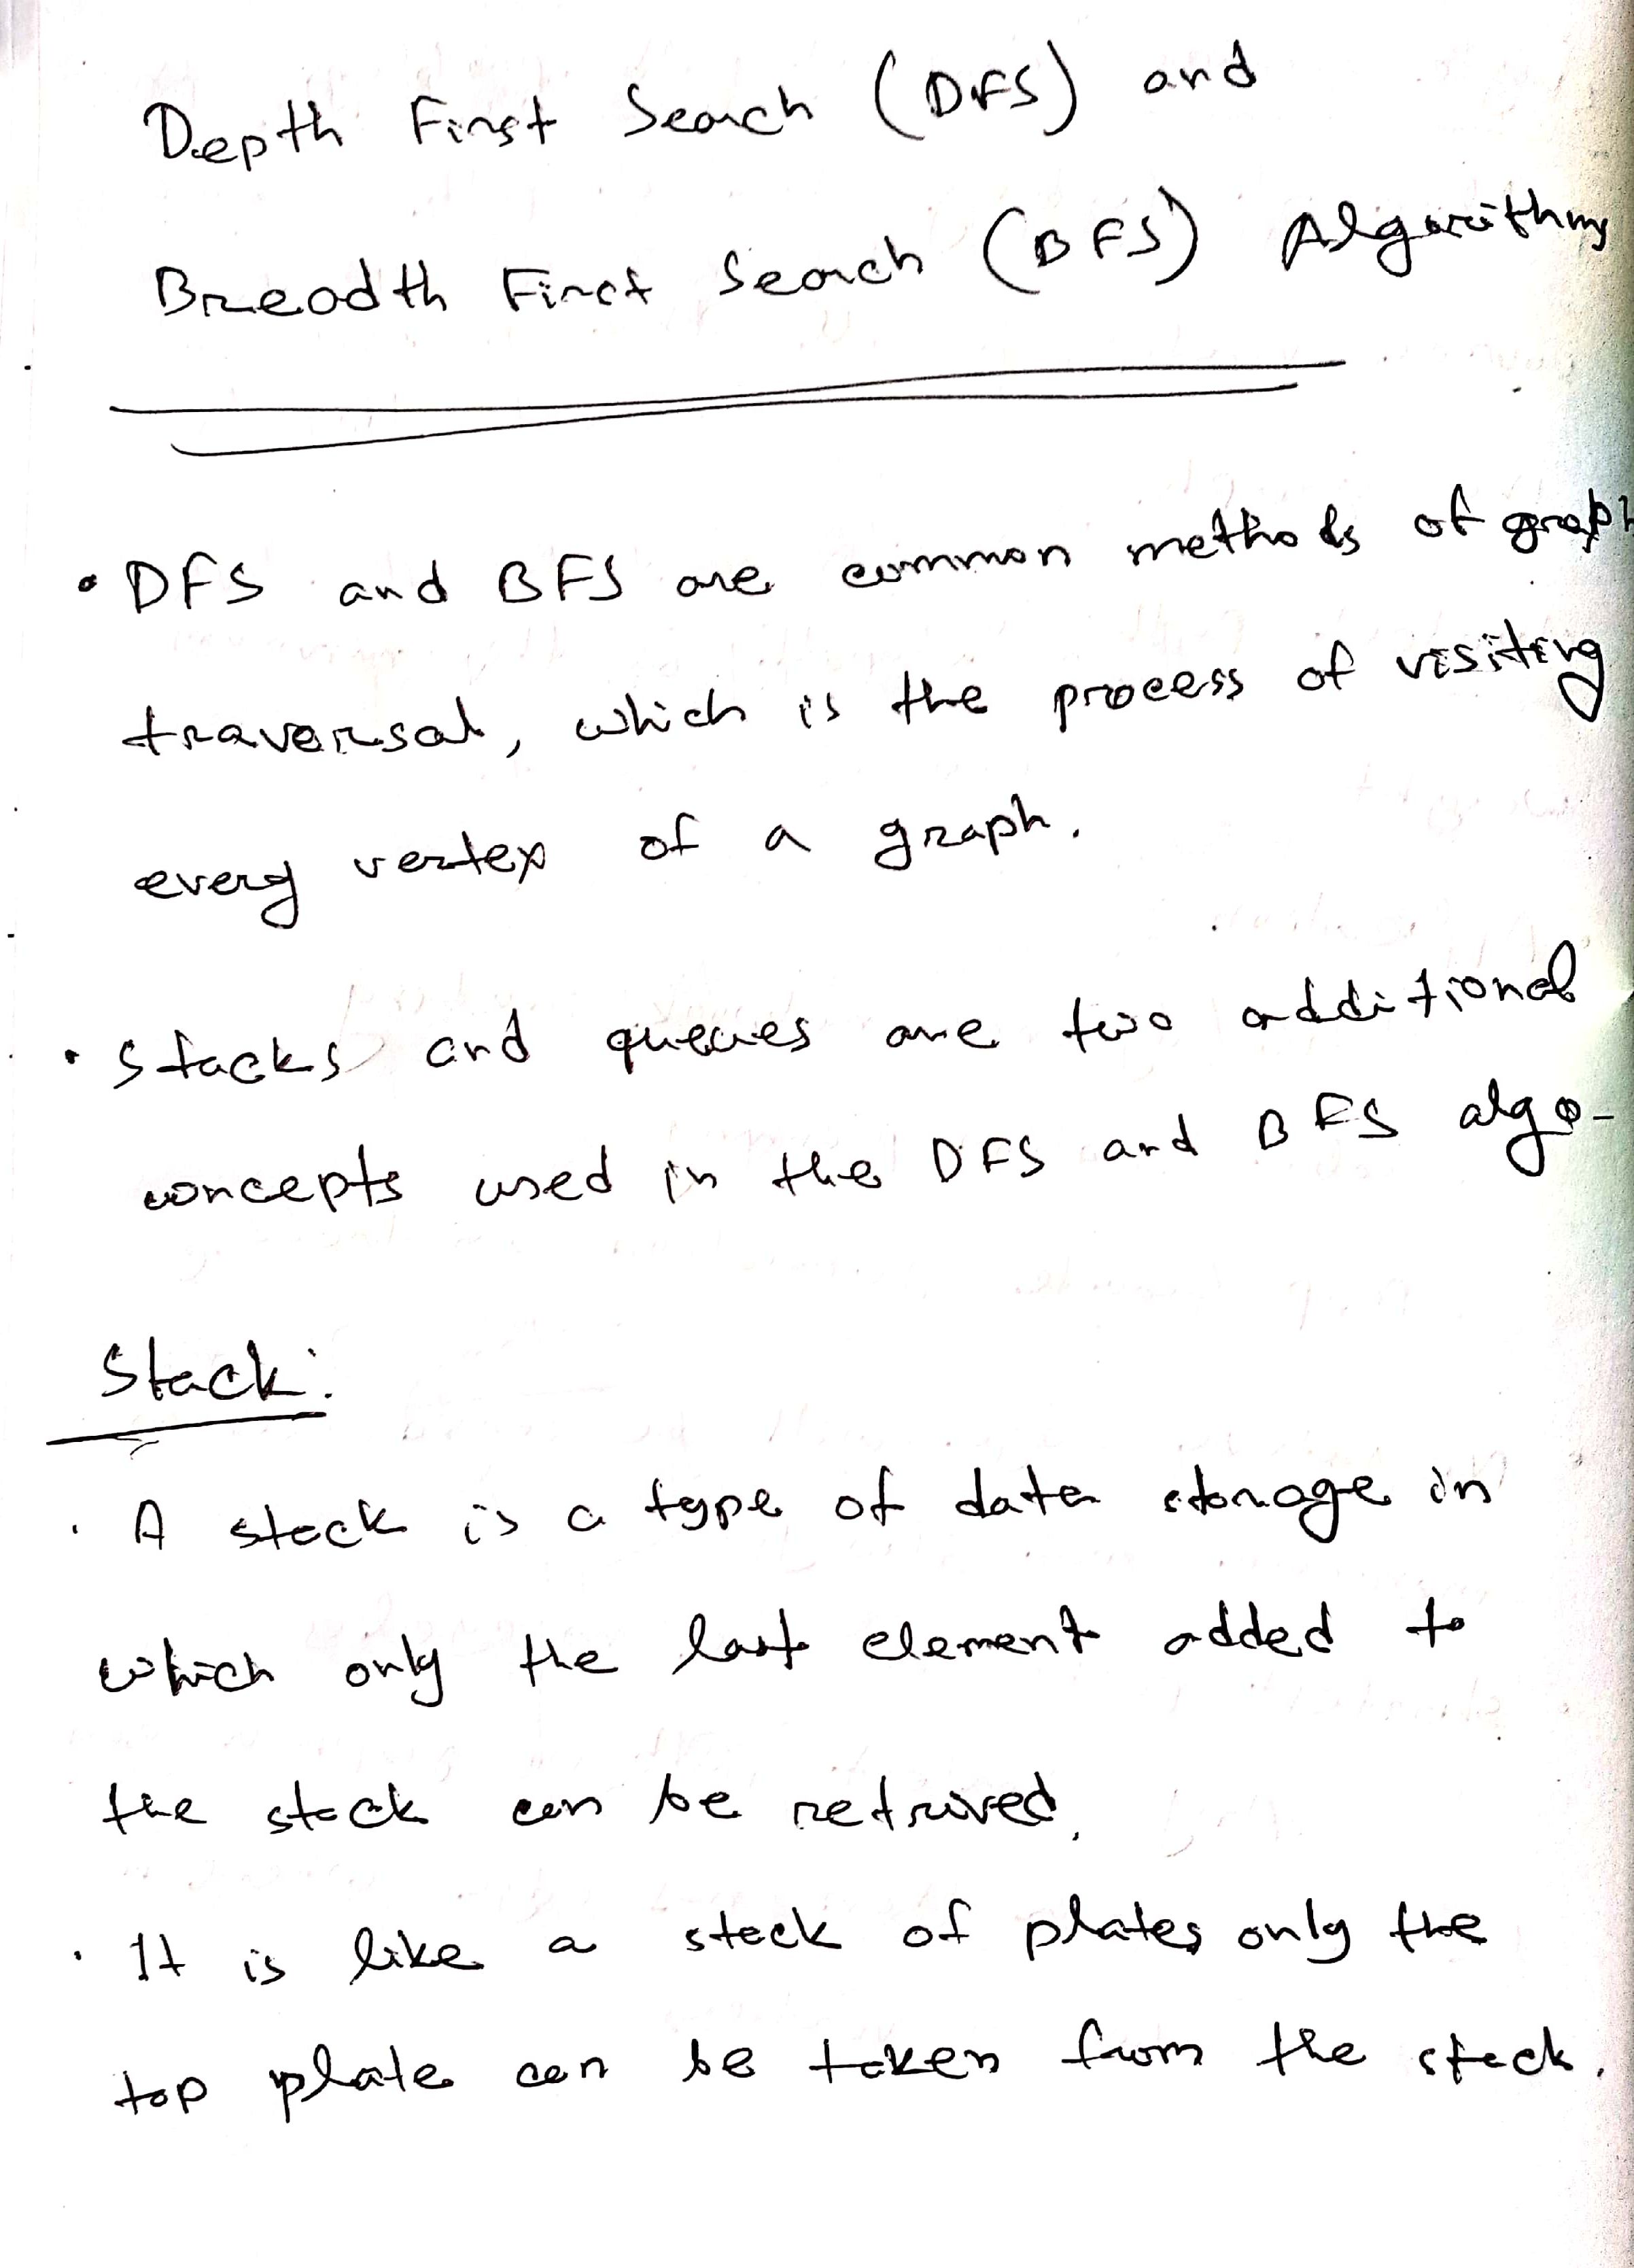 Depth First Search (DFS) and
Breadth First Search (BFS) Algorithms
• DFS and BFS are common methods of graph
traversal, which is the process of visiting
every vertex of a graph.
• Stacks and queues are two additional
concepts used in the DFS and BFS algo-
Stack:
• A stack is a type of data storage in
which only the last element added to
the stack can be retrived.
• It is like a stack of plates only the
top plate can be taken from the stack.